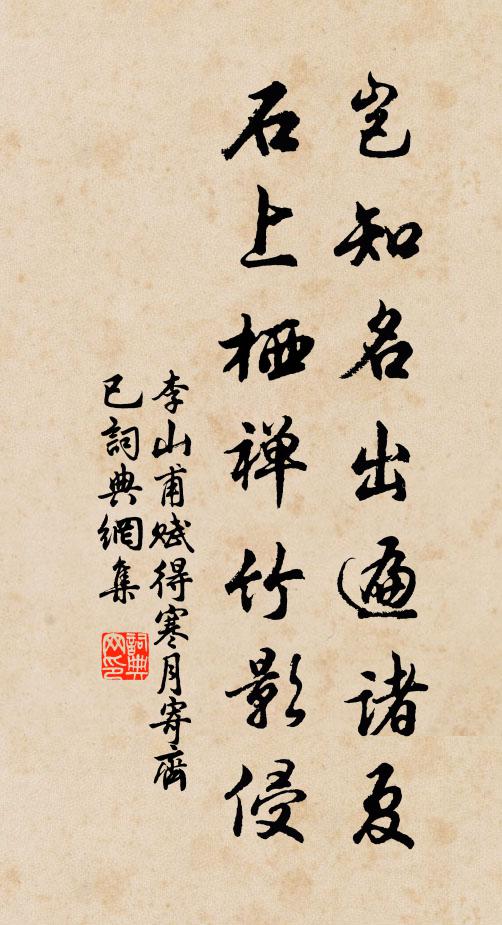 岂知名出遍诸夏
石上栖禅竹影侵
李山甫赋得寒月寄齊
己詞典網集
詞典网印